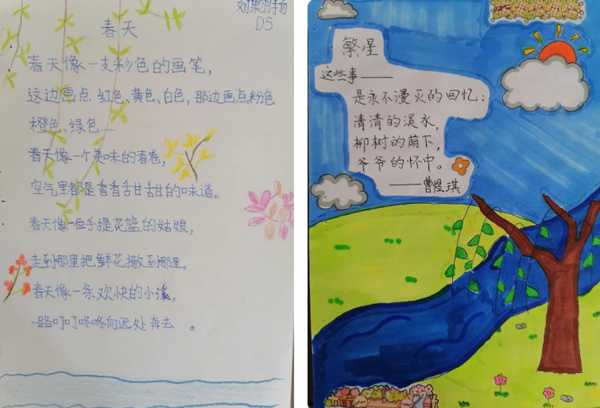 春天
D5
春天像一支彩色的画笔，
这边画点红色、黄色、白色，那边画点粉色
橙色、绿色……
春天像一个美味的春卷，
空气里都是香香甜甜的味道。
春天像一位手提花篮的姑娘，
走到哪里把鲜花撒到哪里。
春天像一条欢快的小溪，
一路叮叮咚咚向远处奔去。
繁星
这些事——
是永不漫灭的回忆：
清清的溪水，
柳树的荫下，
爷爷的怀中。
——曾煜琪